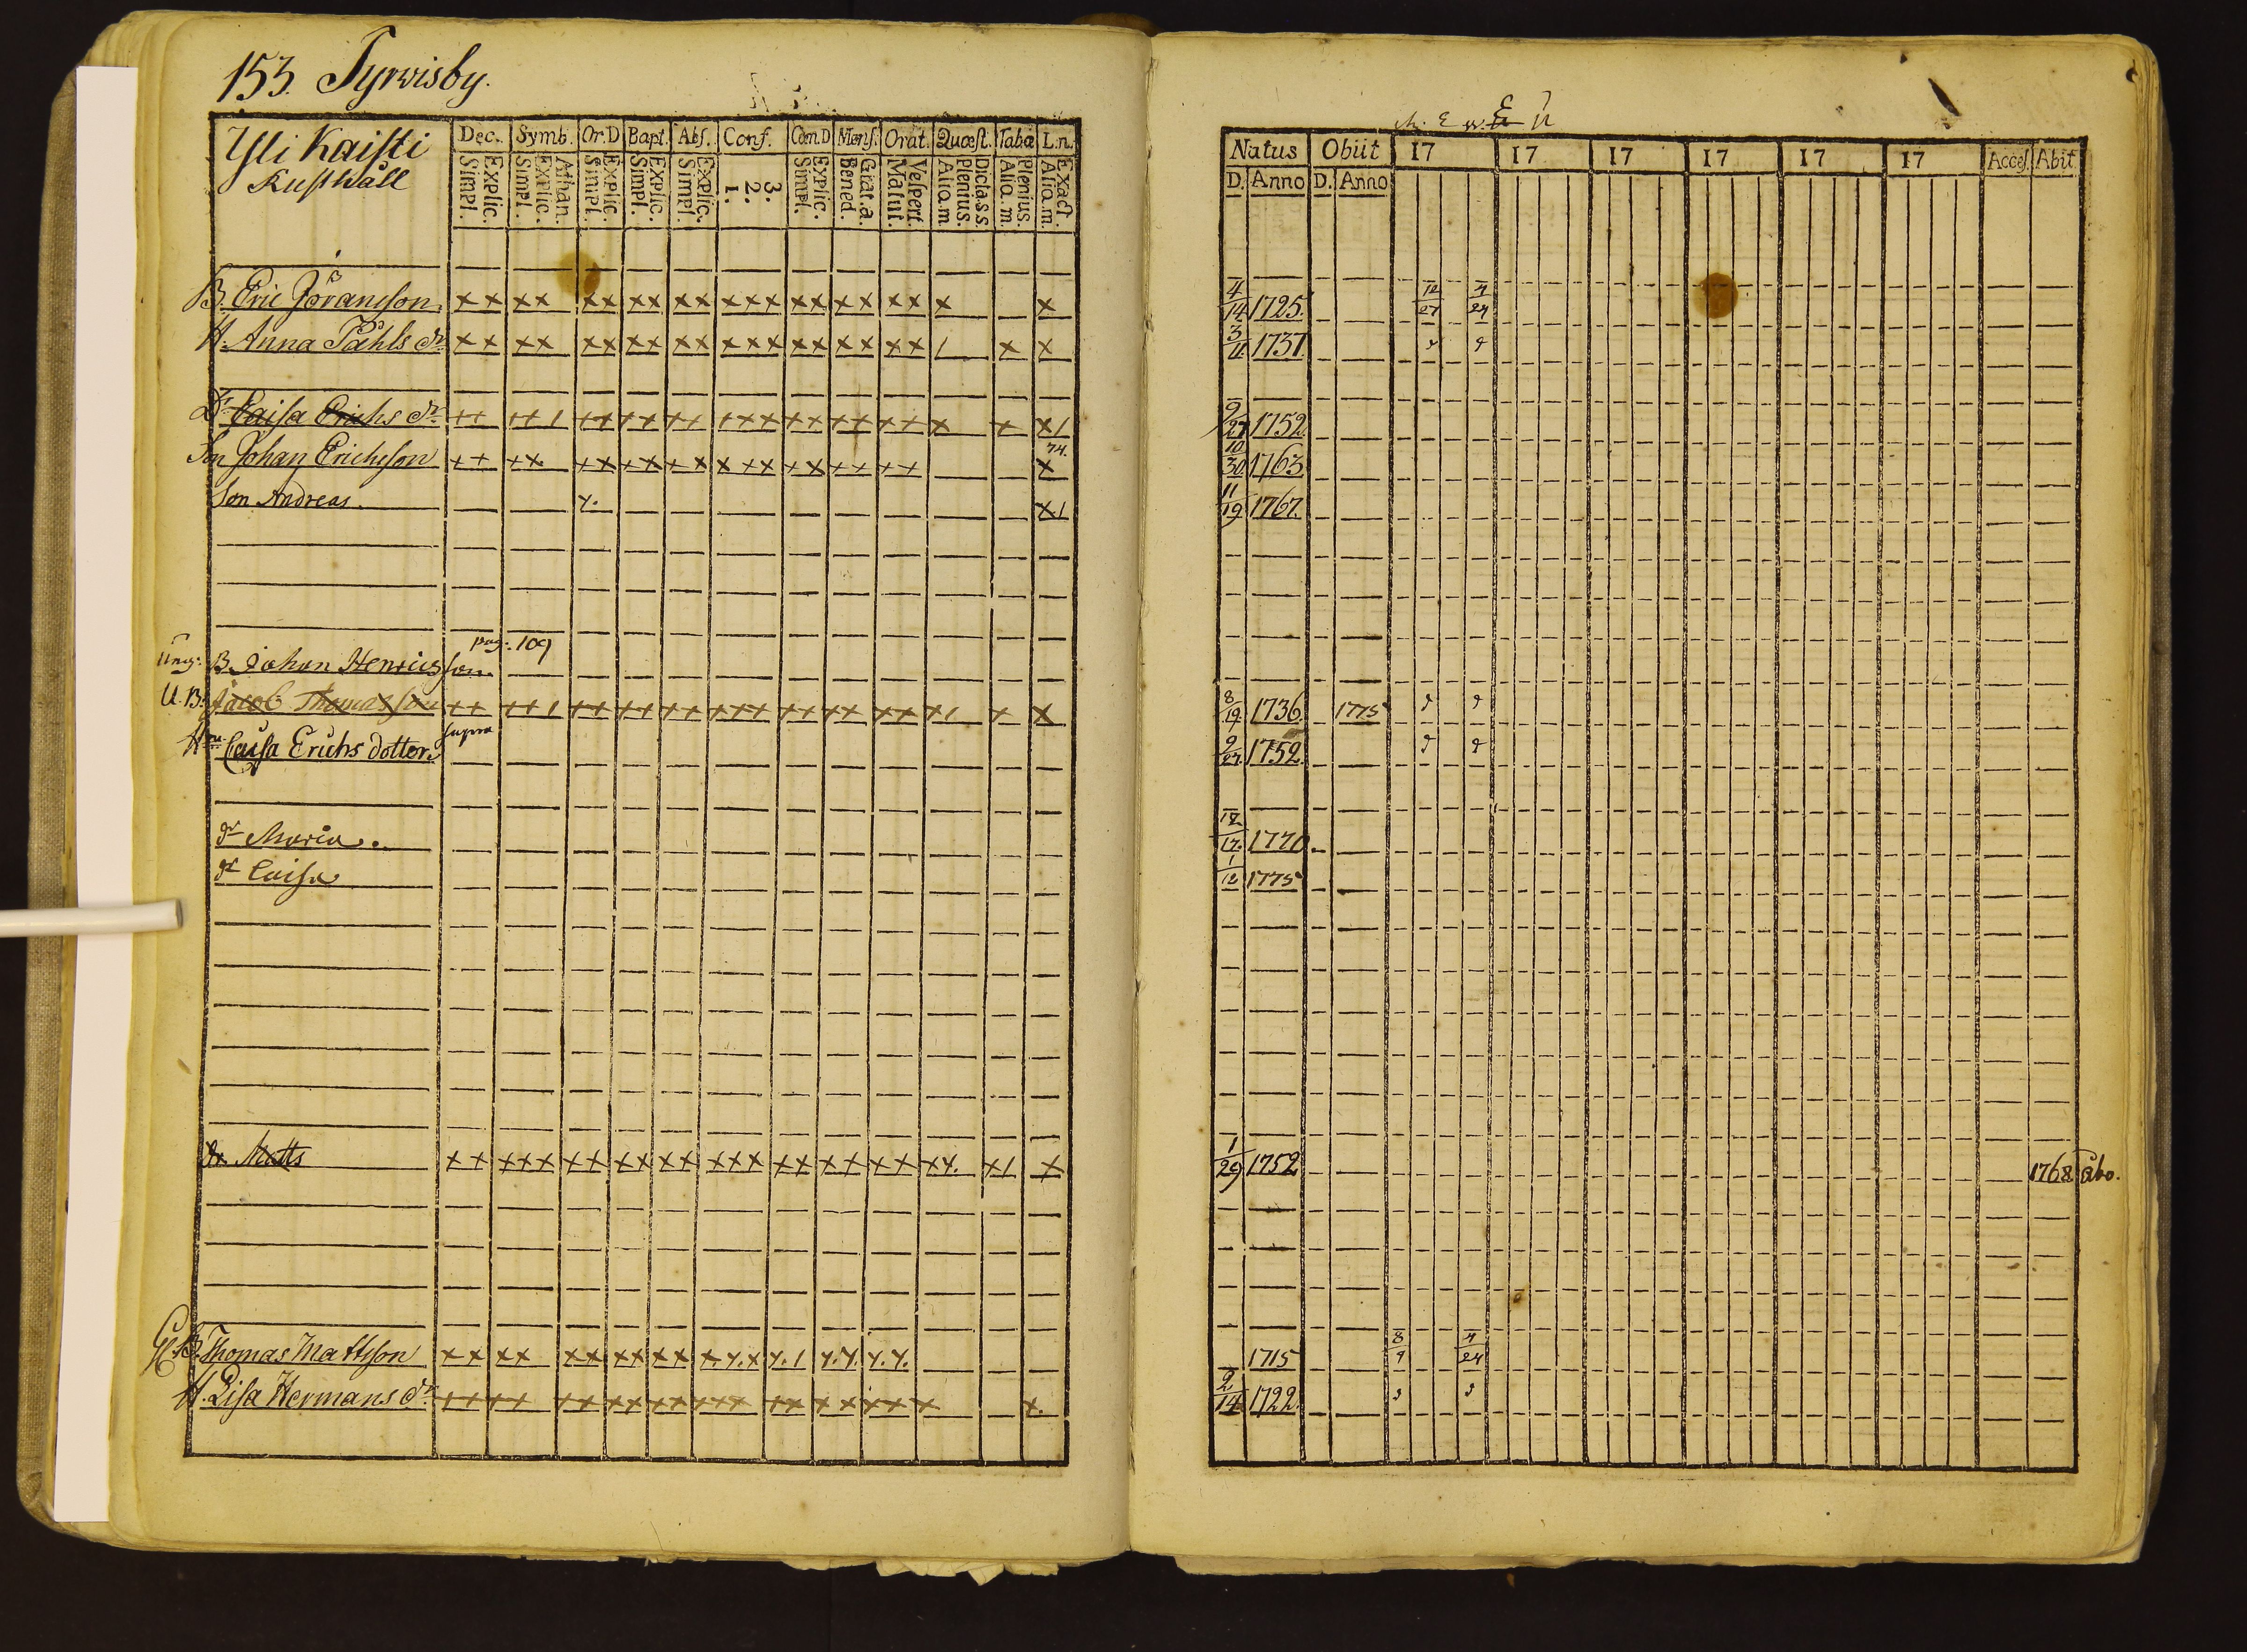 153. Tyrwisby.
Yli Kaisti
Rusthåll
Dec. Symb. Or.D Bapt. Abs. Conf. Cœn.D Mens. Orat. Quæst. Tabæ L.n.
Explic. Simpl. Athan. Explic. Simpl. Explic. Simpl. Explic. Simpl. Explic. Simpl. 3. 2. 1. Explic. Simpl. Grat.a. Bened. Vespert. Matut. Dictass. Plenius. Aliq.m Plenius. Aliq.m. Exact. Aliq.m.
Natus Obiit 17 17 17 17 17 17 Acces. Abit.
D. Anno D. Anno
B. Eric Göransson x x x x x x x x x x x x x x x x x x x x x 4/14 1725. 12/27 4/24
H. Anna Påhls dr x x x x x x x x x x x x x x x x x x x 1 x x 3/11 1737.
Dr Caisa Erichs dr x x x x 1 x x x x x x x x x x x x x x x x x x x 1 9/27 1752
Son Johan Erichsson x x x x x x x x x x x x x x x x x x x 74. x 10/30 1763
Son Andreas x. x 1 11/19 1767.
pag. 109
Ung: B. Johan Henricsson
U. B. Jacob Thomasson x x x x 1 x x x x x x x x x x x x x x x x x 1 x x 8/19 1736. 1775
Hu Caisa Erichs dotter. supra 9/27. 1752.
dr Maria. 12/17. 1770
dr Caisa 1/12 1775
Matts x x x x x x x x x x x x x x x x x x x x x x x. x 1 x 1/29 1752 1768 Åbo.
B. Thomas Mattsson x x x x x x x x x x x. x. x x. 1 x. x. x. x. 1715 8/9 4/24
H. Lisa Hermans dr x x x x x x x x x x x x x x x x x x x x x. 2/14 1722.